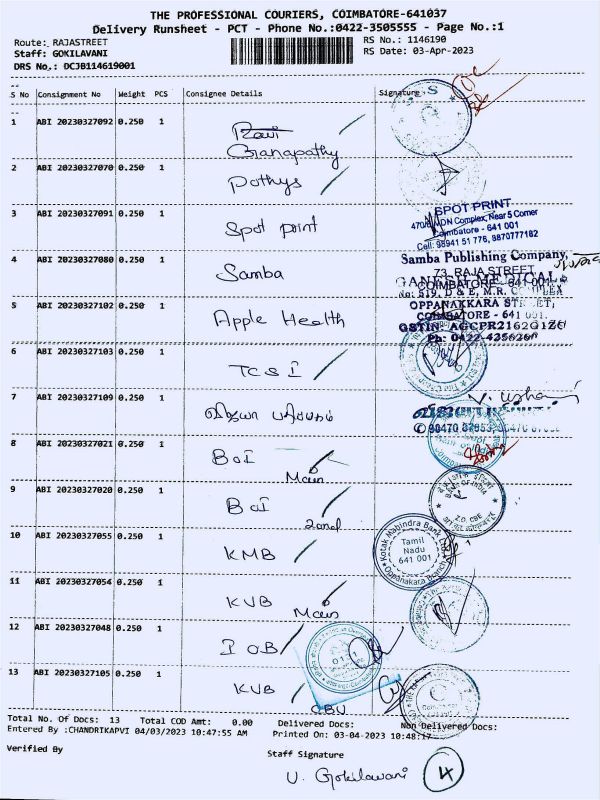 THE PROFESSIONAL COURIERS, COIMBATORE-641037
Delivery Runsheet - PCT - Phone No.:0422-3505555 - Page No.:1
Route: RAJASTREET
RS No.: 1146190
Staff: GOKILAVANI
RS Date: 03-Apr-2023
DRS No.: DCJB114619001
S No Consignment No Weight PCS Consignee Details Signature
1 ABI 20230327092 0.250 1 Ravi
Ganapathy
2 ABI 20230327070 0.250 1 Pothys
3 ABI 20230327091 0.250 1 Spot print
SPOT PRINT
Complex, Near 5 Corner
Coimbatore - 641 001
Cell: 98941 51 776, 9870777182
4 ABI 20230327080 0.250 1 Samba
Samba Publishing Company,
73, RAJA STREET
COIMBATORE - 641 001
GANESH MEDICAL
No: 519, D & E, M.R. COMPLEX
OPPANAKKARA STREET,
COIMBATORE - 641 001.
GSTIN: AGCPR2162G1ZU
5 ABI 20230327102 0.250 1 Apple Health
6 ABI 20230327103 0.250 1 TCSI
7 ABI 20230327109 0.250 1 விஜயா பதிப்பகம்
8 ABI 20230327021 0.250 1 BOI
Main
9 ABI 20230327020 0.250 1 BOI
Zonal
Z.O, CBE
10 ABI 20230327055 0.250 1 KMB
Kotak Mahindra Bank Ltd
Tamil
Nadu
641 001
Oppanakara Branch
11 ABI 20230327054 0.250 1 KVB
Main
12 ABI 20230327048 0.250 1 IOB
13 ABI 20230327105 0.250 1 KVB
CBU
Total No. Of Docs: 13 Total COD Amt: 0.00 Delivered Docs: Non Delivered Docs:
Entered By :CHANDRIKAPVI 04/03/2023 10:47:55 AM Printed On: 03-04-2023 10:48:17
Verified By
Staff Signature
U. Gokilavani 4